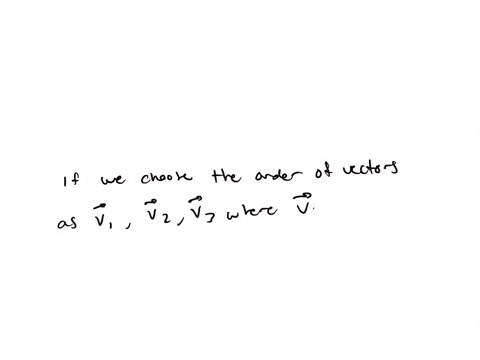 If we choose the order of vectors
as v⃗₁, v⃗₂, v⃗₃ where v⃗.